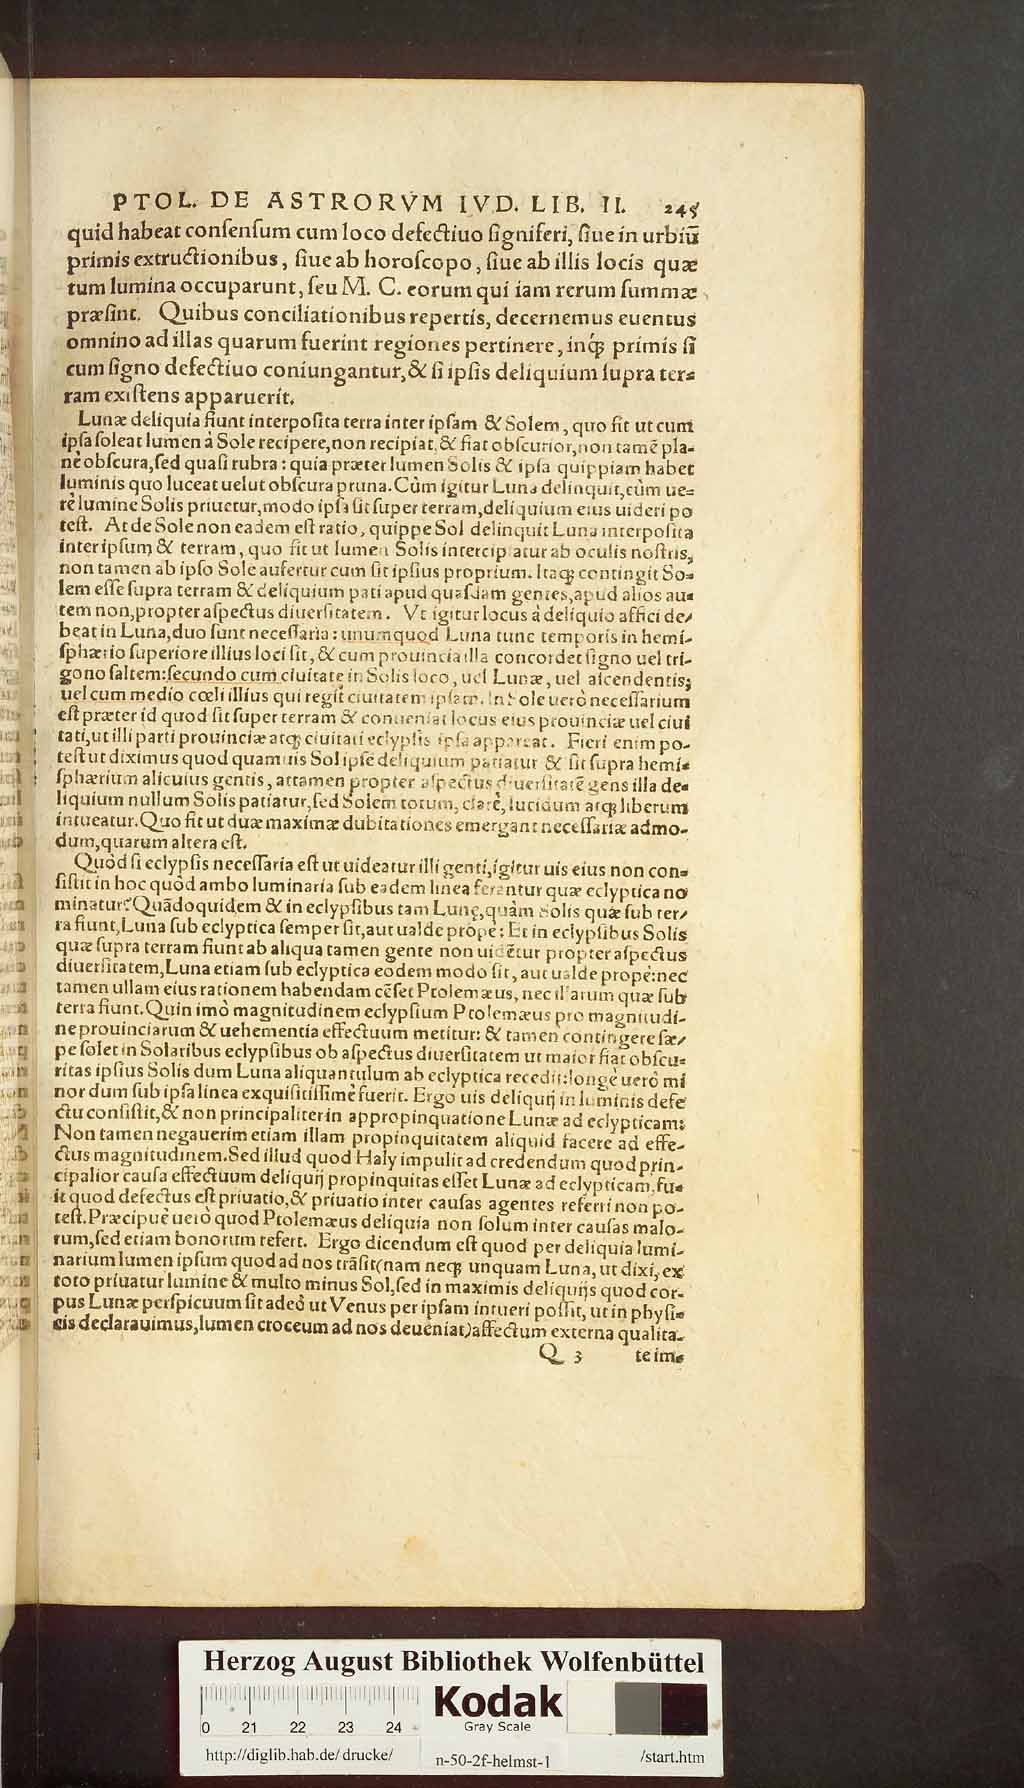 PTOL. DE ASTRORVM IVD. LIB. II. 245
quid habeat consensum cum loco defectiuo signiferi, siue in urbiū
primis extructionibus, siue ab horoscopo, siue ab illis locis quæ
tum lumina occuparunt, seu M. C. eorum qui iam rerum summæ
præsint. Quibus conciliationibus repertis, decernemus euentus
omnino ad illas quarum fuerint regiones pertinere, inq; primis si
cum signo defectiuo coniungantur, & si ipsis deliquium supra ter-
ram existens apparuerit.
Lunæ deliquia fiunt interposita terra inter ipsam & Solem, quo fit ut cum
ipsa soleat lumen à Sole recipere, non recipiat, & fiat obscurior, non tamē pla-
nè obscura, sed quasi rubra: quia præter lumen Solis & ipsa quippiam habet
luminis quo luceat uelut obscura pruna. Cùm igitur Luna delinquit, cùm ue-
rè lumine Solis priuetur, modo ipsa sit super terram, deliquium eius uideri po
test. At de Sole non eadem est ratio, quippe Sol delinquit Luna interposita
inter ipsum & terram, quo fit ut lumen Solis intercipiatur ab oculis nostris,
non tamen ab ipso Sole aufertur cum sit ipsius proprium. Itaq; contingit So-
lem esse supra terram & deliquium pati apud quasdam gentes, apud alios au-
tem non, propter aspectus diuersitatem. Vt igitur locus à deliquio affici de-
beat in Luna, duo sunt necessaria: unum quod Luna tunc temporis in hemi-
sphærio superiore illius loci sit, & cum prouincia illa concordet signo uel tri-
gono saltem: secundo cum ciuitate in Solis loco, uel Lunæ, uel ascendentis;
uel cum medio cœli illius qui regit ciuitatem ipsam. In Sole uerò necessarium
est præter id quod sit super terram & conueniat locus eius prouinciæ uel ciui
tati, ut illi parti prouinciæ atq; ciuitati eclypsis ipsa appareat. Fieri enim po-
test ut diximus quod quamuis Sol ipse deliquium patiatur & sit supra hemi-
sphærium alicuius gentis, attamen propter aspectus diuersitatē gens illa de-
liquium nullum Solis patiatur, sed Solem totum, clarè, lucidum atq; liberum
intueatur. Quo fit ut duæ maximæ dubitationes emergant necessariæ admo-
dum, quarum altera est.
Quòd si eclypsis necessaria est ut uideatur illi genti, igitur uis eius non con-
sistit in hoc quòd ambo luminaria sub eadem linea ferantur quæ ecliptica no
minatur? Quādoquidem & in eclypsibus tam Lunę, quàm Solis quæ sub ter-
ra fiunt, Luna sub ecliptica semper sit, aut ualde propè: Et in eclypsibus Solis
quæ supra terram fiunt ab aliqua tamen gente non uidētur propter aspectus
diuersitatem, Luna etiam sub ecliptica eodem modo sit, aut ualde propè: nec
tamen ullam eius rationem habendam cēset Ptolemæus, nec illarum quæ sub
terra fiunt. Quin imò magnitudinem eclypsium Ptolemæus pro magnitudi-
ne prouinciarum & uehementia effectuum metitur: & tamen contingere sæ-
pe solet in Solaribus eclypsibus ob aspectus diuersitatem ut maior fiat obscu-
ritas ipsius Solis dum Luna aliquantulum ab ecliptica recedit: longè uerò mi
nor dum sub ipsa linea exquisitissimè fuerit. Ergo uis deliquij in luminis defe
ctu consistit, & non principaliter in appropinquatione Lunæ ad eclypticam:
Non tamen negauerim etiam illam propinquitatem aliquid facere ad effe-
ctus magnitudinem. Sed illud quod Haly impulit ad credendum quod prin-
cipalior causa effectuum deliquij propinquitas esset Lunæ ad eclypticam, fu-
it quod defectus est priuatio, & priuatio inter causas agentes referri non po-
test. Præcipuè uerò quod Ptolemæus deliquia non solum inter causas malo-
rum, sed etiam bonorum refert. Ergo dicendum est quod per deliquia lumi-
narium lumen ipsum quod ad nos trāsit (nam neq; unquam Luna, ut dixi, ex
toto priuatur lumine & multo minus Sol, sed in maximis deliquijs quod cor-
pus Lunæ perspicuum sit adeò ut Venus per ipsam intueri possit, ut in physi-
cis declarauimus, lumen croceum ad nos deueniat) affectum externa qualita-
Q 3 te im-
Herzog August Bibliothek Wolfenbüttel
0 21 22 23 24
Kodak
Gray Scale
http://diglib.hab.de/drucke/ n-50-2f-helmst-1 /start.htm